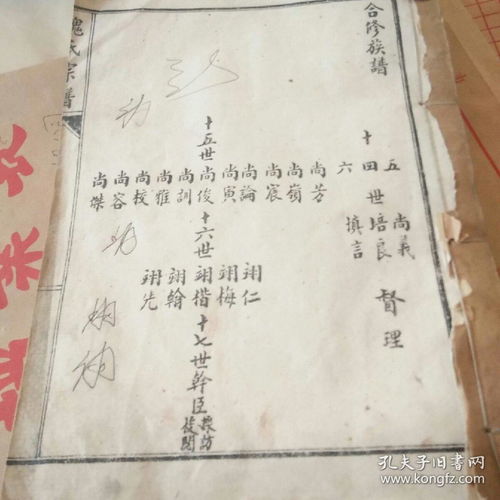 合修族譜
十四世培良 督理
五 尚義
六 填言
尚芳
尚嶺
尚宸
尚論
尚寅
十五世尚俊
尚訓
尚雅
尚校
尚容
尚傑
翊仁
翊梅
十六世翊楷
翊翰
翊先
十七世幹臣
採訪
校閱
氏宗譜
孔夫子旧书网
www.kongfz.com